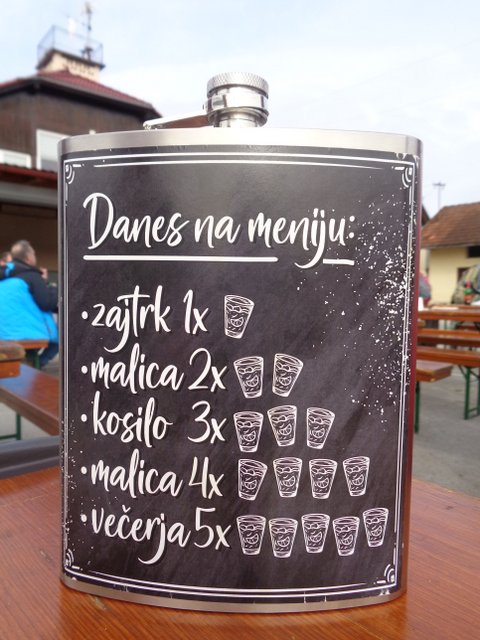 Danes na meniju:
•zajtrk 1x
•malica 2x
•kosilo 3x
•malica 4x
•večerja 5x